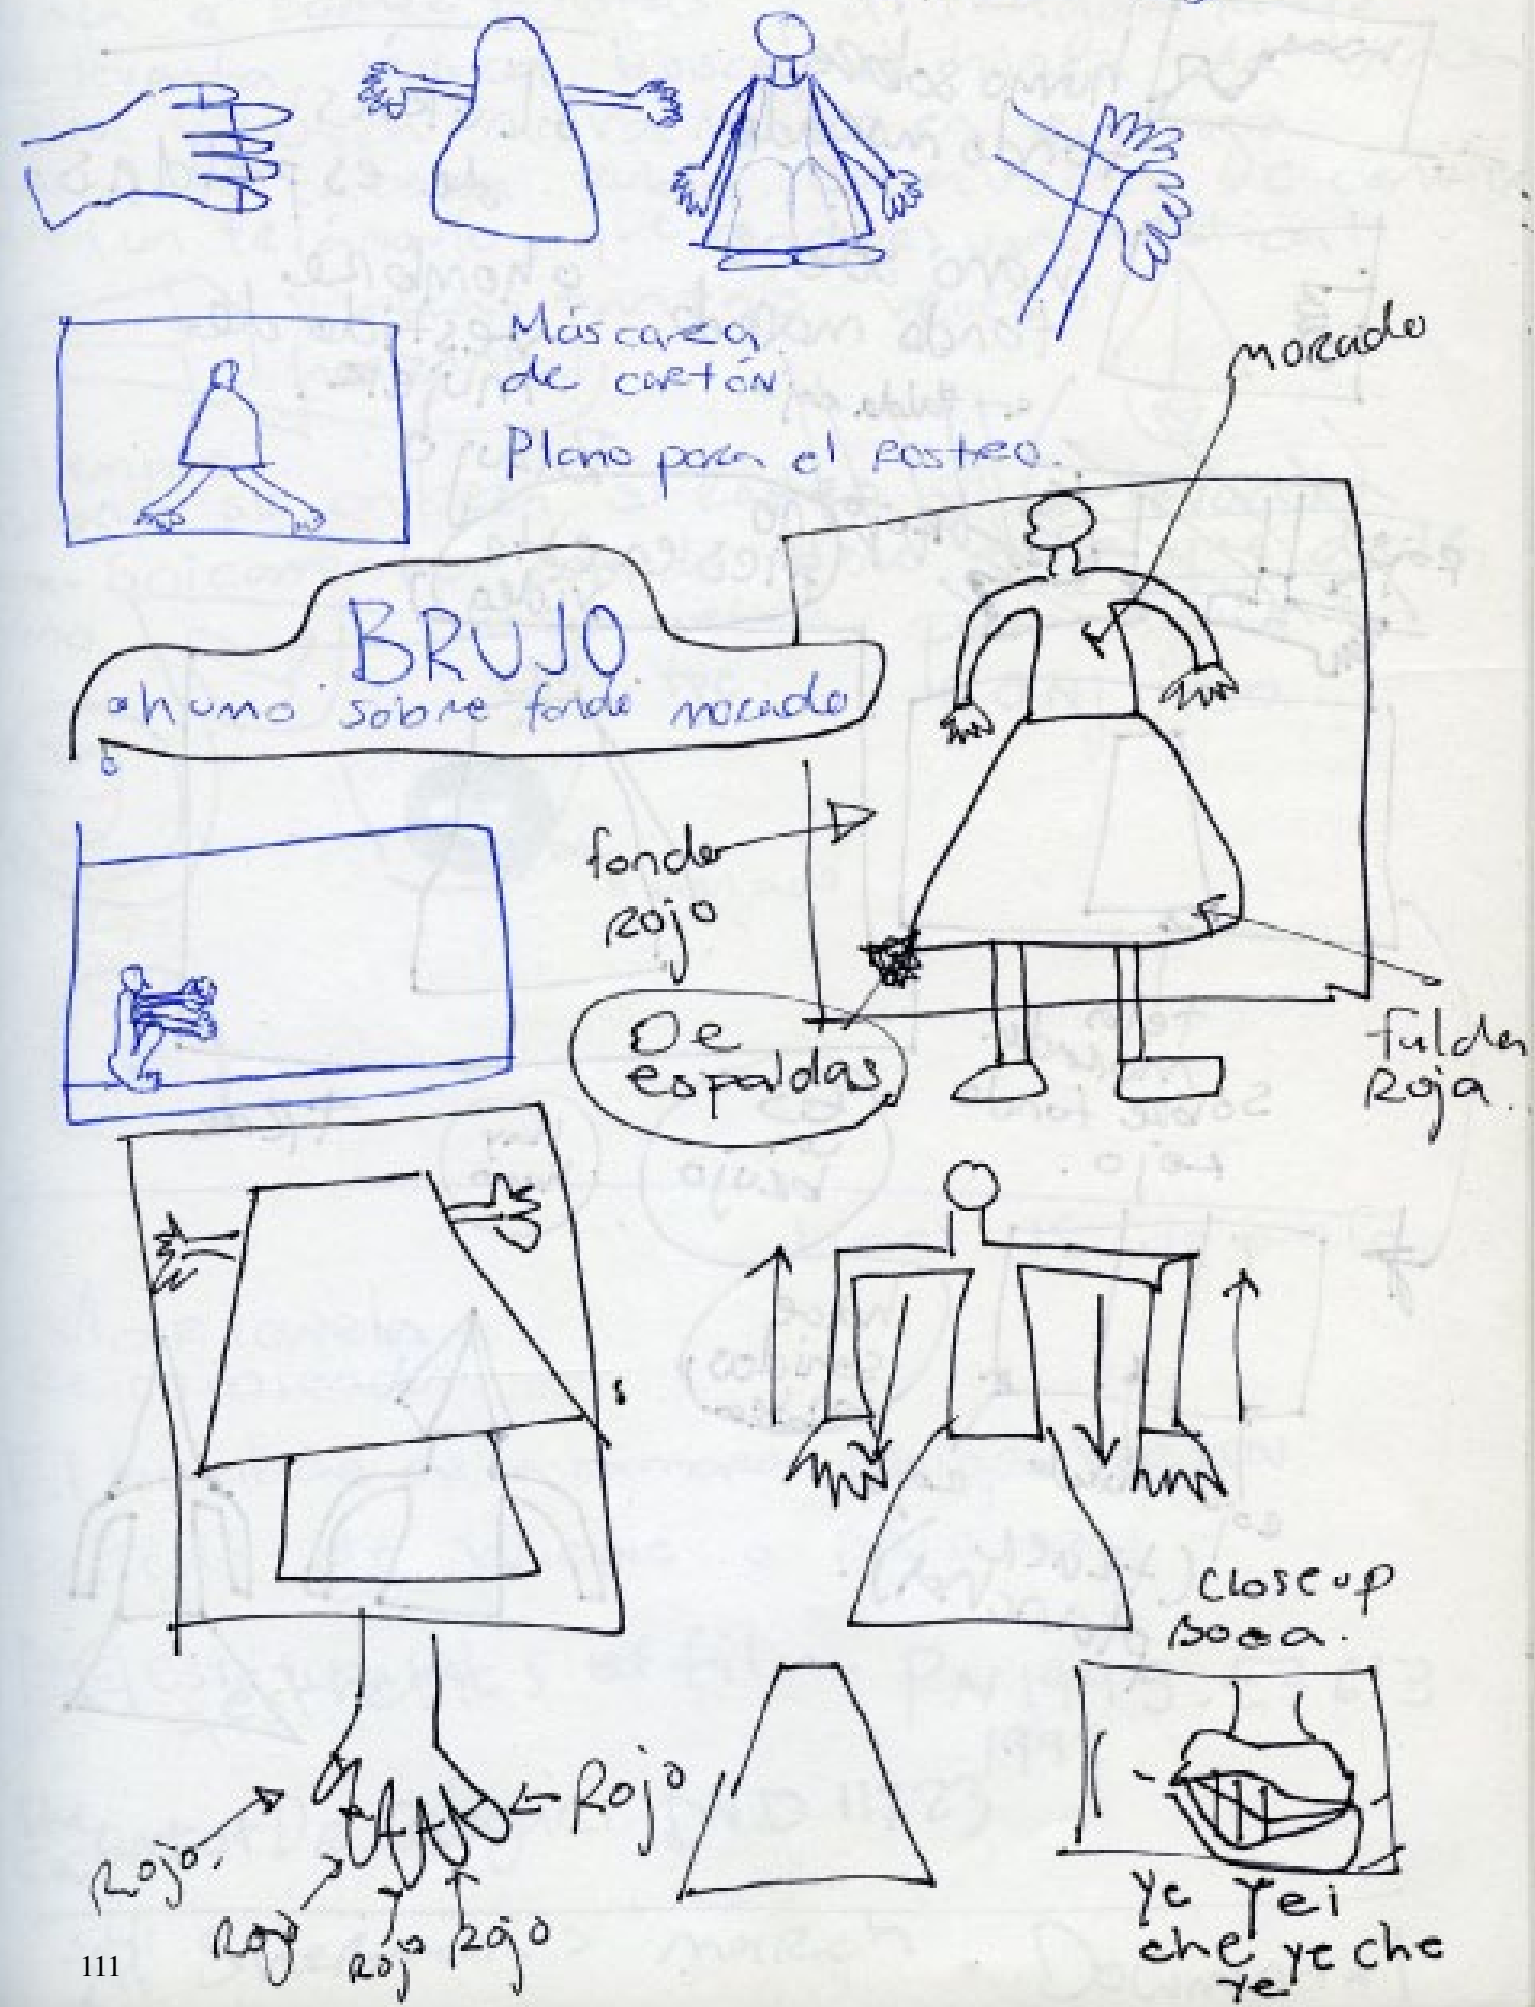 Máscara
de cartón
Plano para el rostro.
morado
BRUJO
humo sobre fondo morado
fondo
rojo
De
espaldas
falda
Roja.
Closeup
Boca.
Rojo
Rojo.
Rojo
Rojo
Rojo
ye yei
che ye che
ye
111